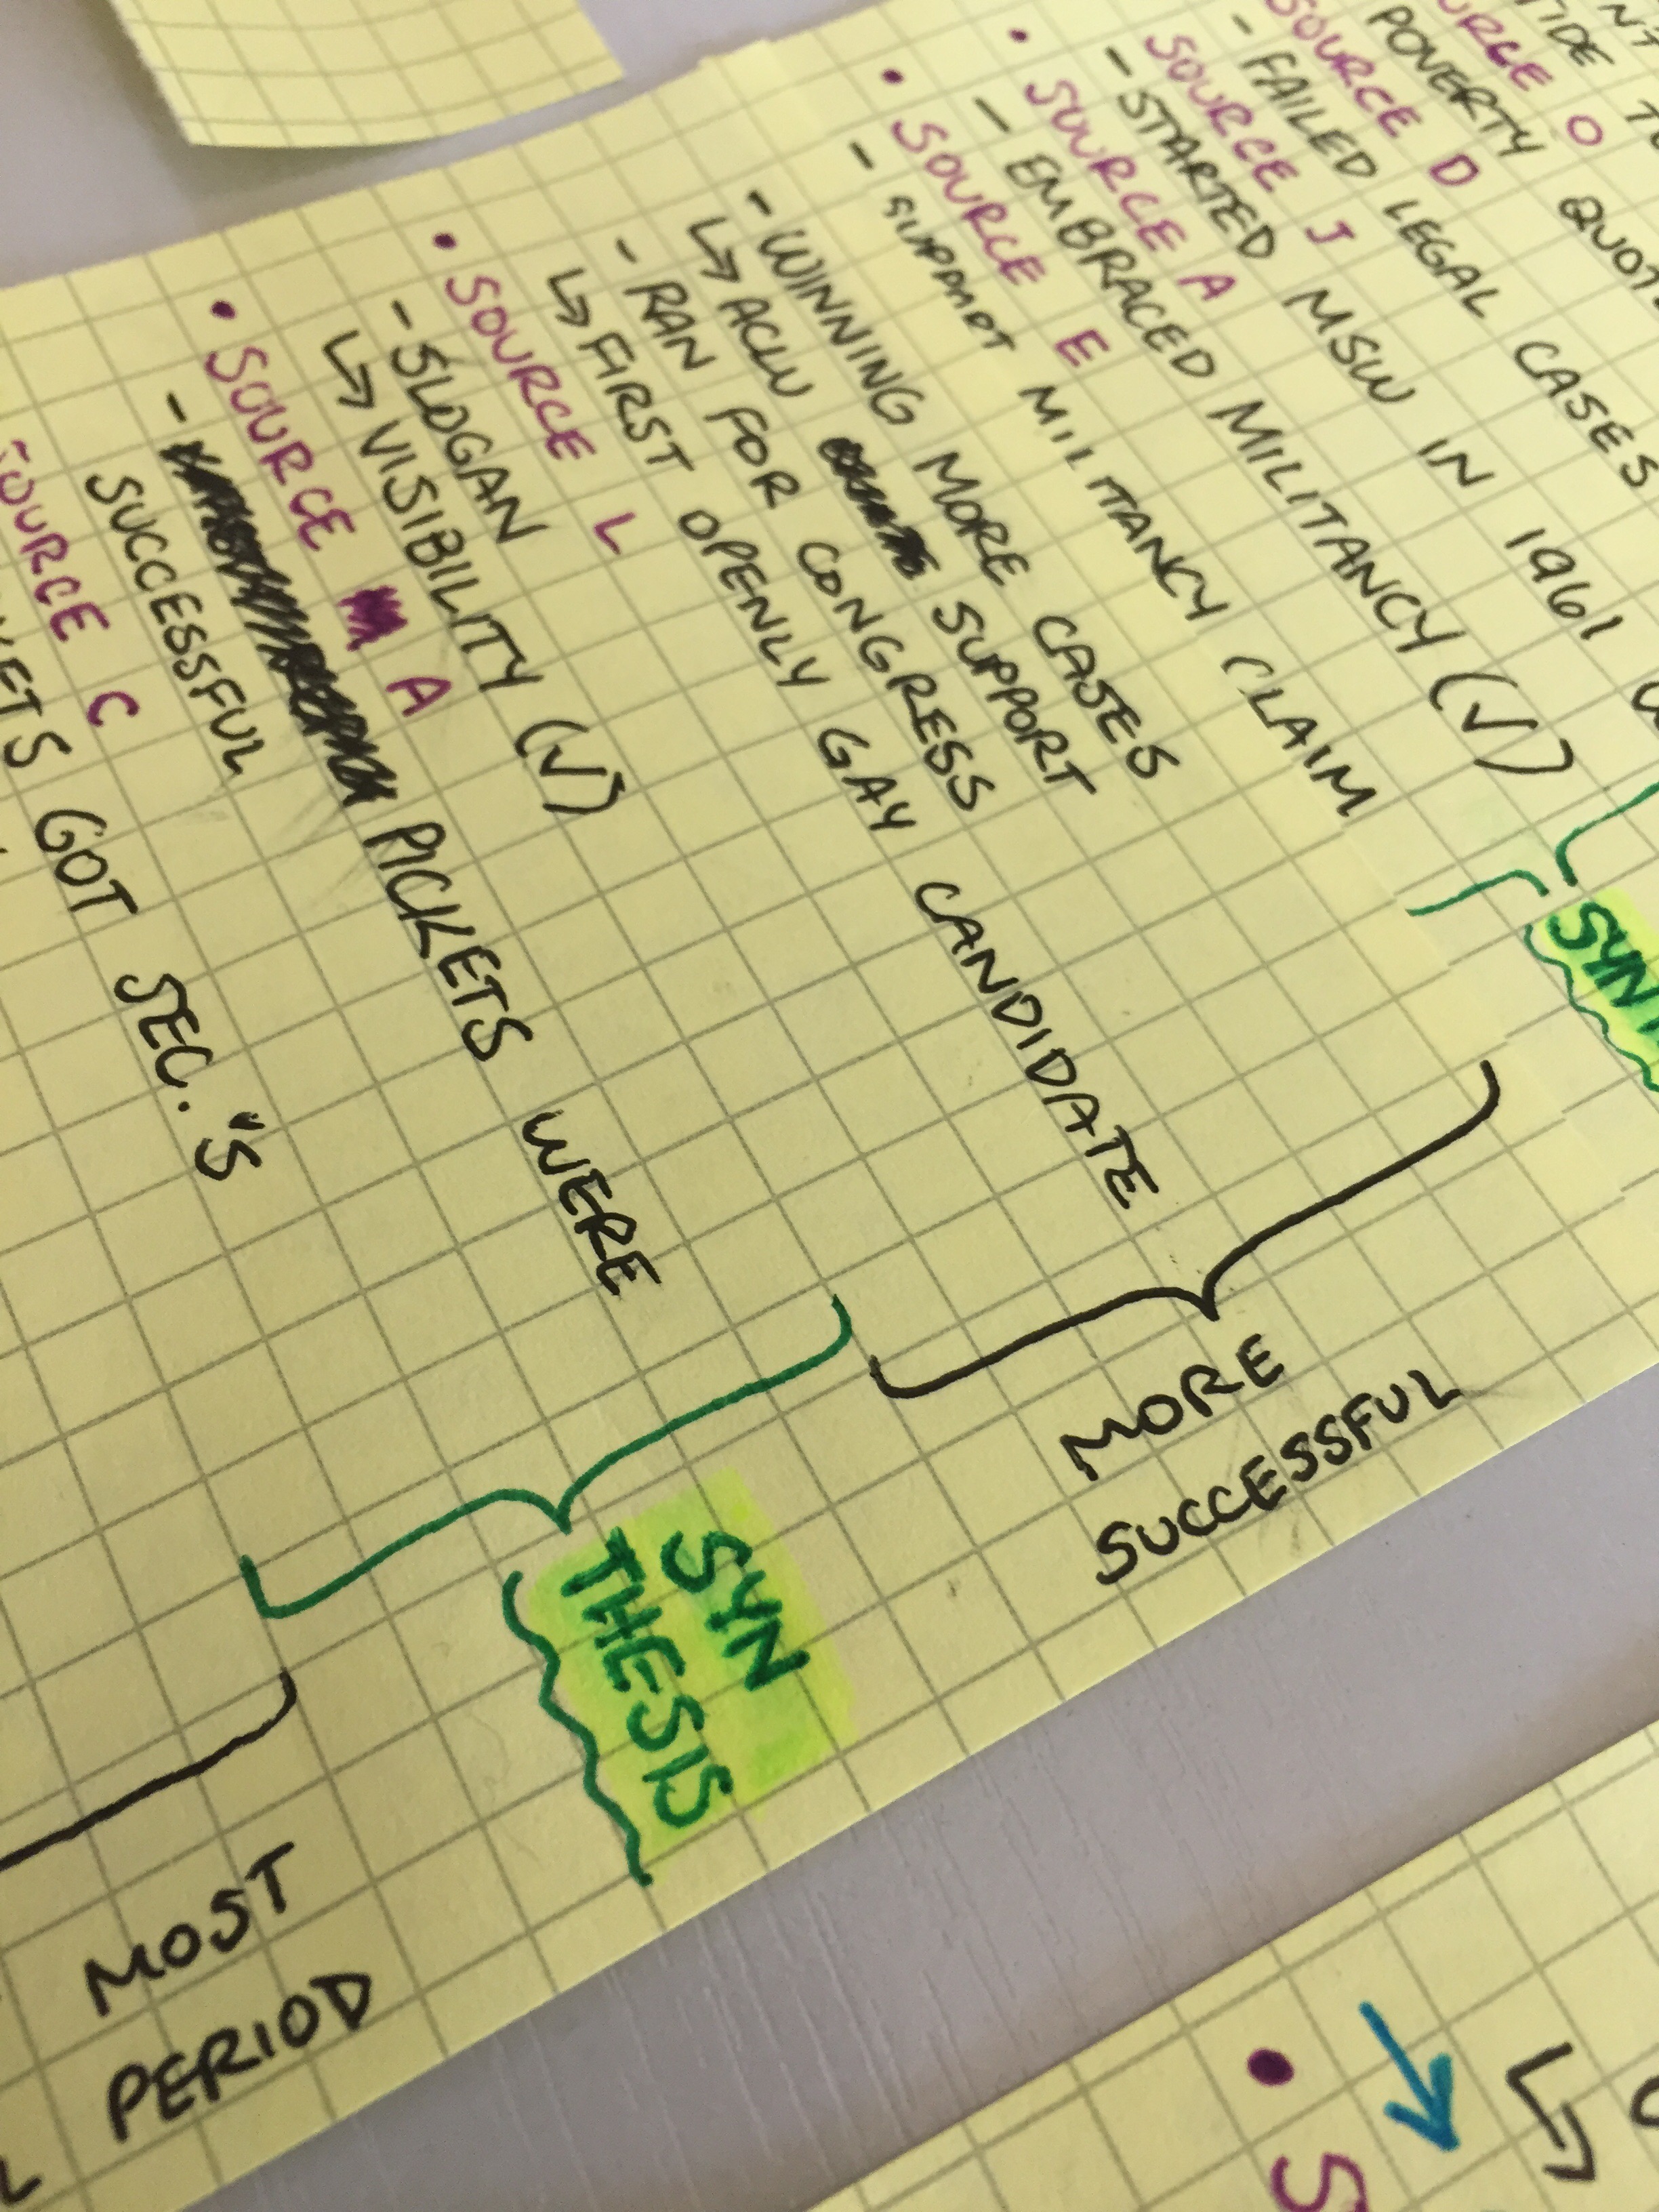 NT
TIDE TO
URCE O
POVERTY QUOT
SOURCE D
- FAILED LEGAL CASES
• SOURCE J
- STARTED MSW IN 1961
SYN
• SOURCE A
- EMBRACED MILITANCY (√)
• SOURCE E
- SUPPORT MILITANCY CLAIM
- WINNING MORE CASES
↳ ACLU SUPPORT
- RAN FOR CONGRESS
↳ FIRST OPENLY GAY CANDIDATE
MORE
SUCCESSFUL
• SOURCE L
- SLOGAN
↳ VISIBILITY (√)
• SOURCE A
- PICKETS WERE
SUCCESSFUL
SYN
THESIS
SOURCE C
KETS GOT SEC.'S
MOST
PERIOD
• S